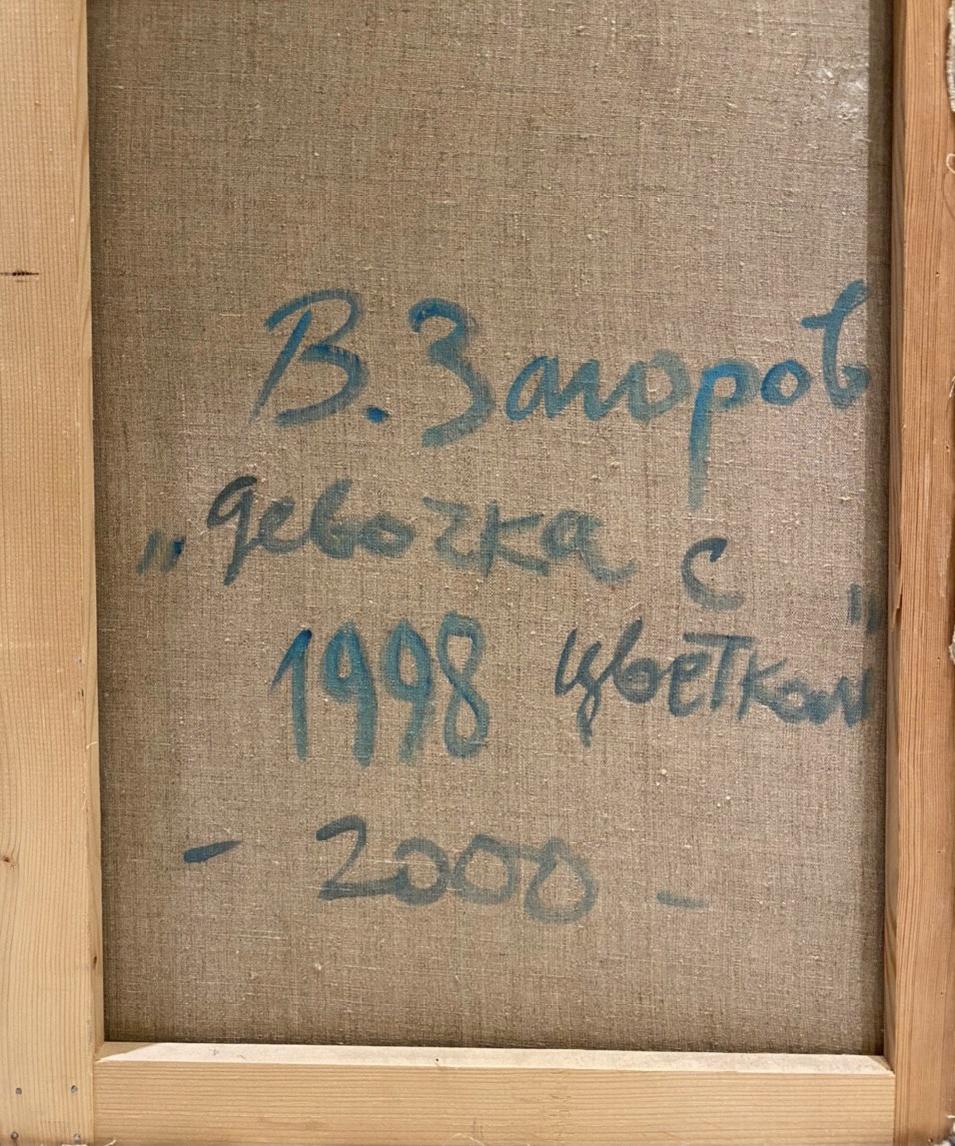 В. Загоров
„Девочка с
1998 цветком"
- 2000 -